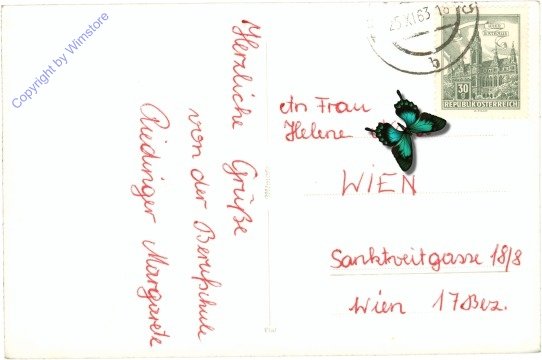 Copyright by Wimstore
Herzliche Grüße
von der Berufschule
Riedinger Margarete
25.XI.63
b
WIEN RATHAUS
30 g
REPUBLIK ÖSTERREICH
An Frau
Helene
WIEN
Sanktveitgasse 18/8
Wien 17 Bez.